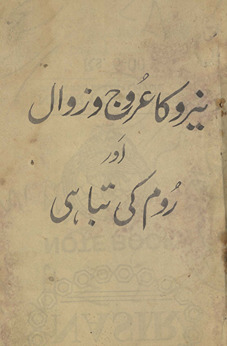 نیرو کا عروج و زوال
اور
رُوم کی تباہی